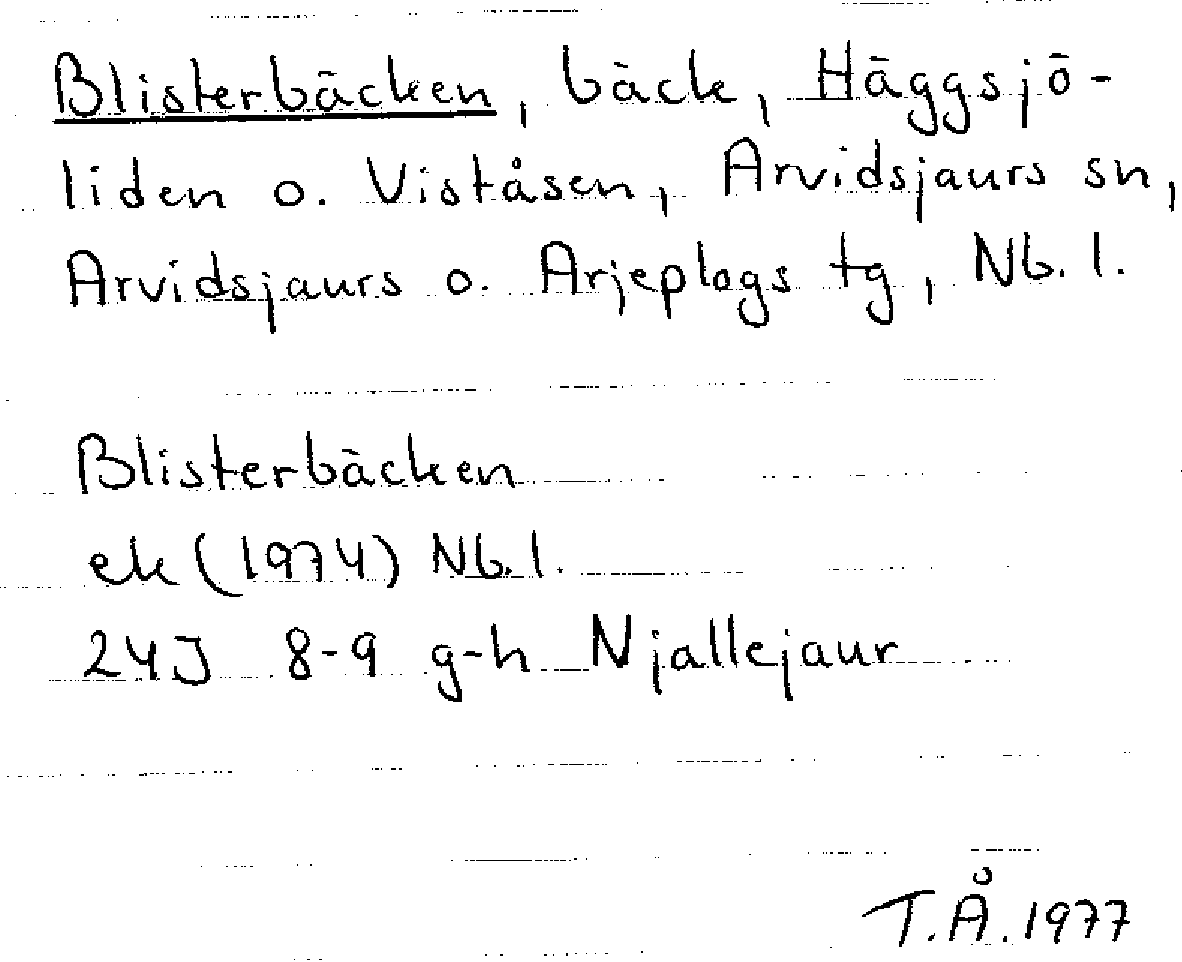 Blisterbäcken, bäck, Häggsjö-
liden o. Viståsen, Arvidsjaurs sn,
Arvidsjaurs o. Arjeplogs tg, Nb. l.
Blisterbäcken
ek (1974) Nb. l.
24J 8-9 g-h Njallejaur
T.Å. 1977